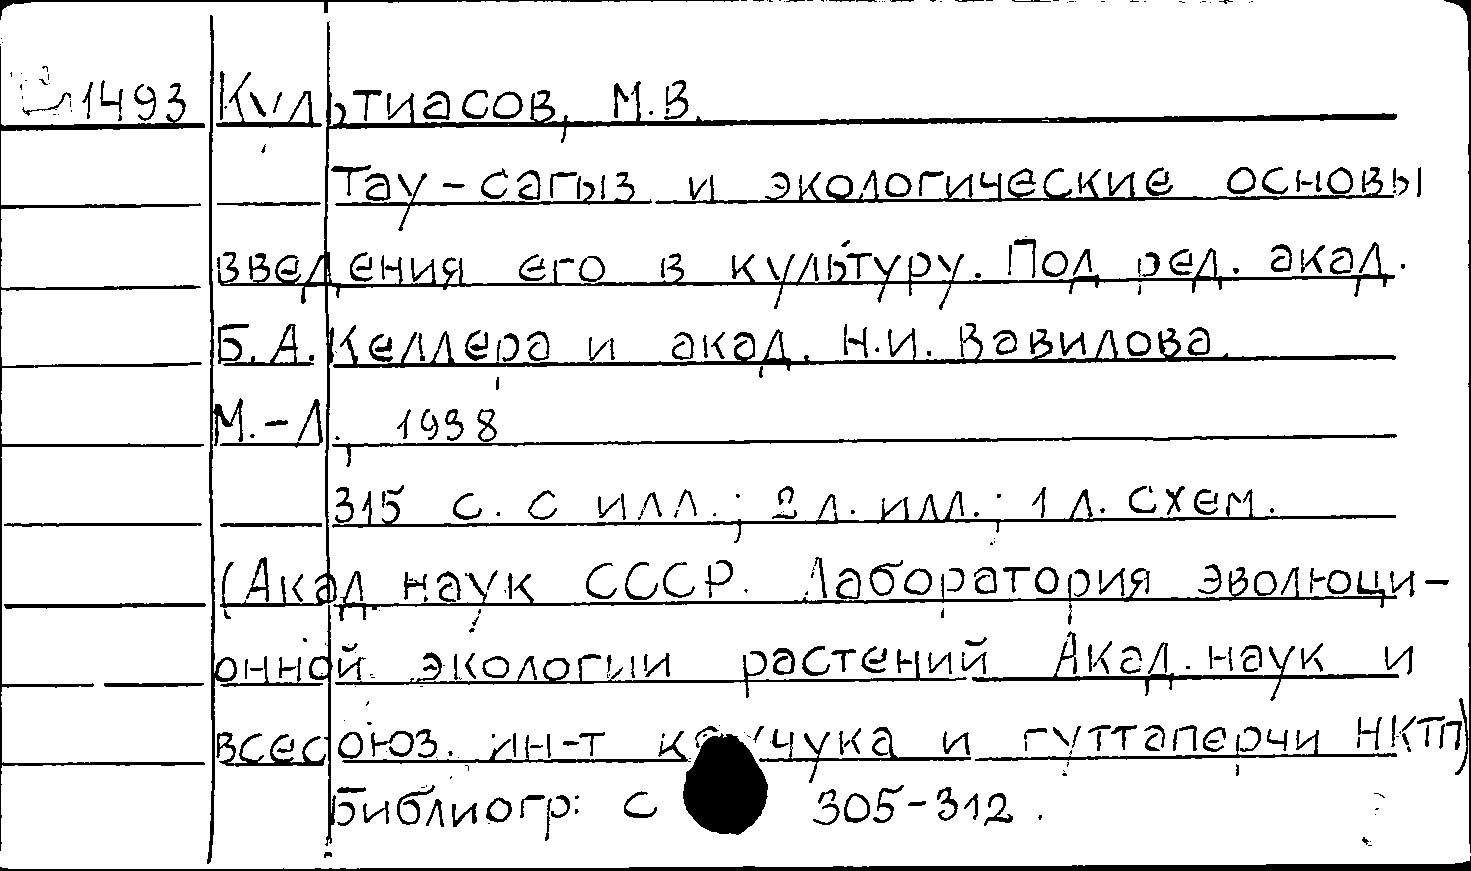 1493 Культиасов, М.В.
Тау-сагыз и экологические основы
введения его в культуру. Под ред. акад.
Б.А. Келлера и акад. Н.И. Вавилова.
М.-Л., 1938
315 с. с илл.; 2 л. илл.; 1 л. схем.
(Акад. наук СССР. Лаборатория эволюци-
онной экологии растений Акад. наук и
всесоюз. ин-т каучука и гуттаперчи НКТП)
Библиогр: с 305-312.